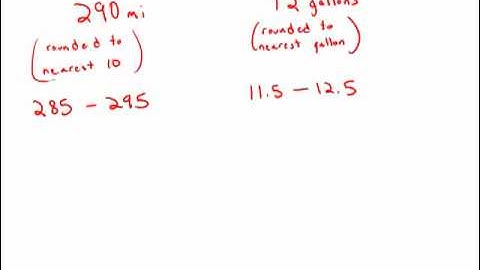 290 mi
(rounded to
nearest 10)
285 – 295
12 gallons
(rounded to
nearest gallon)
11.5 – 12.5